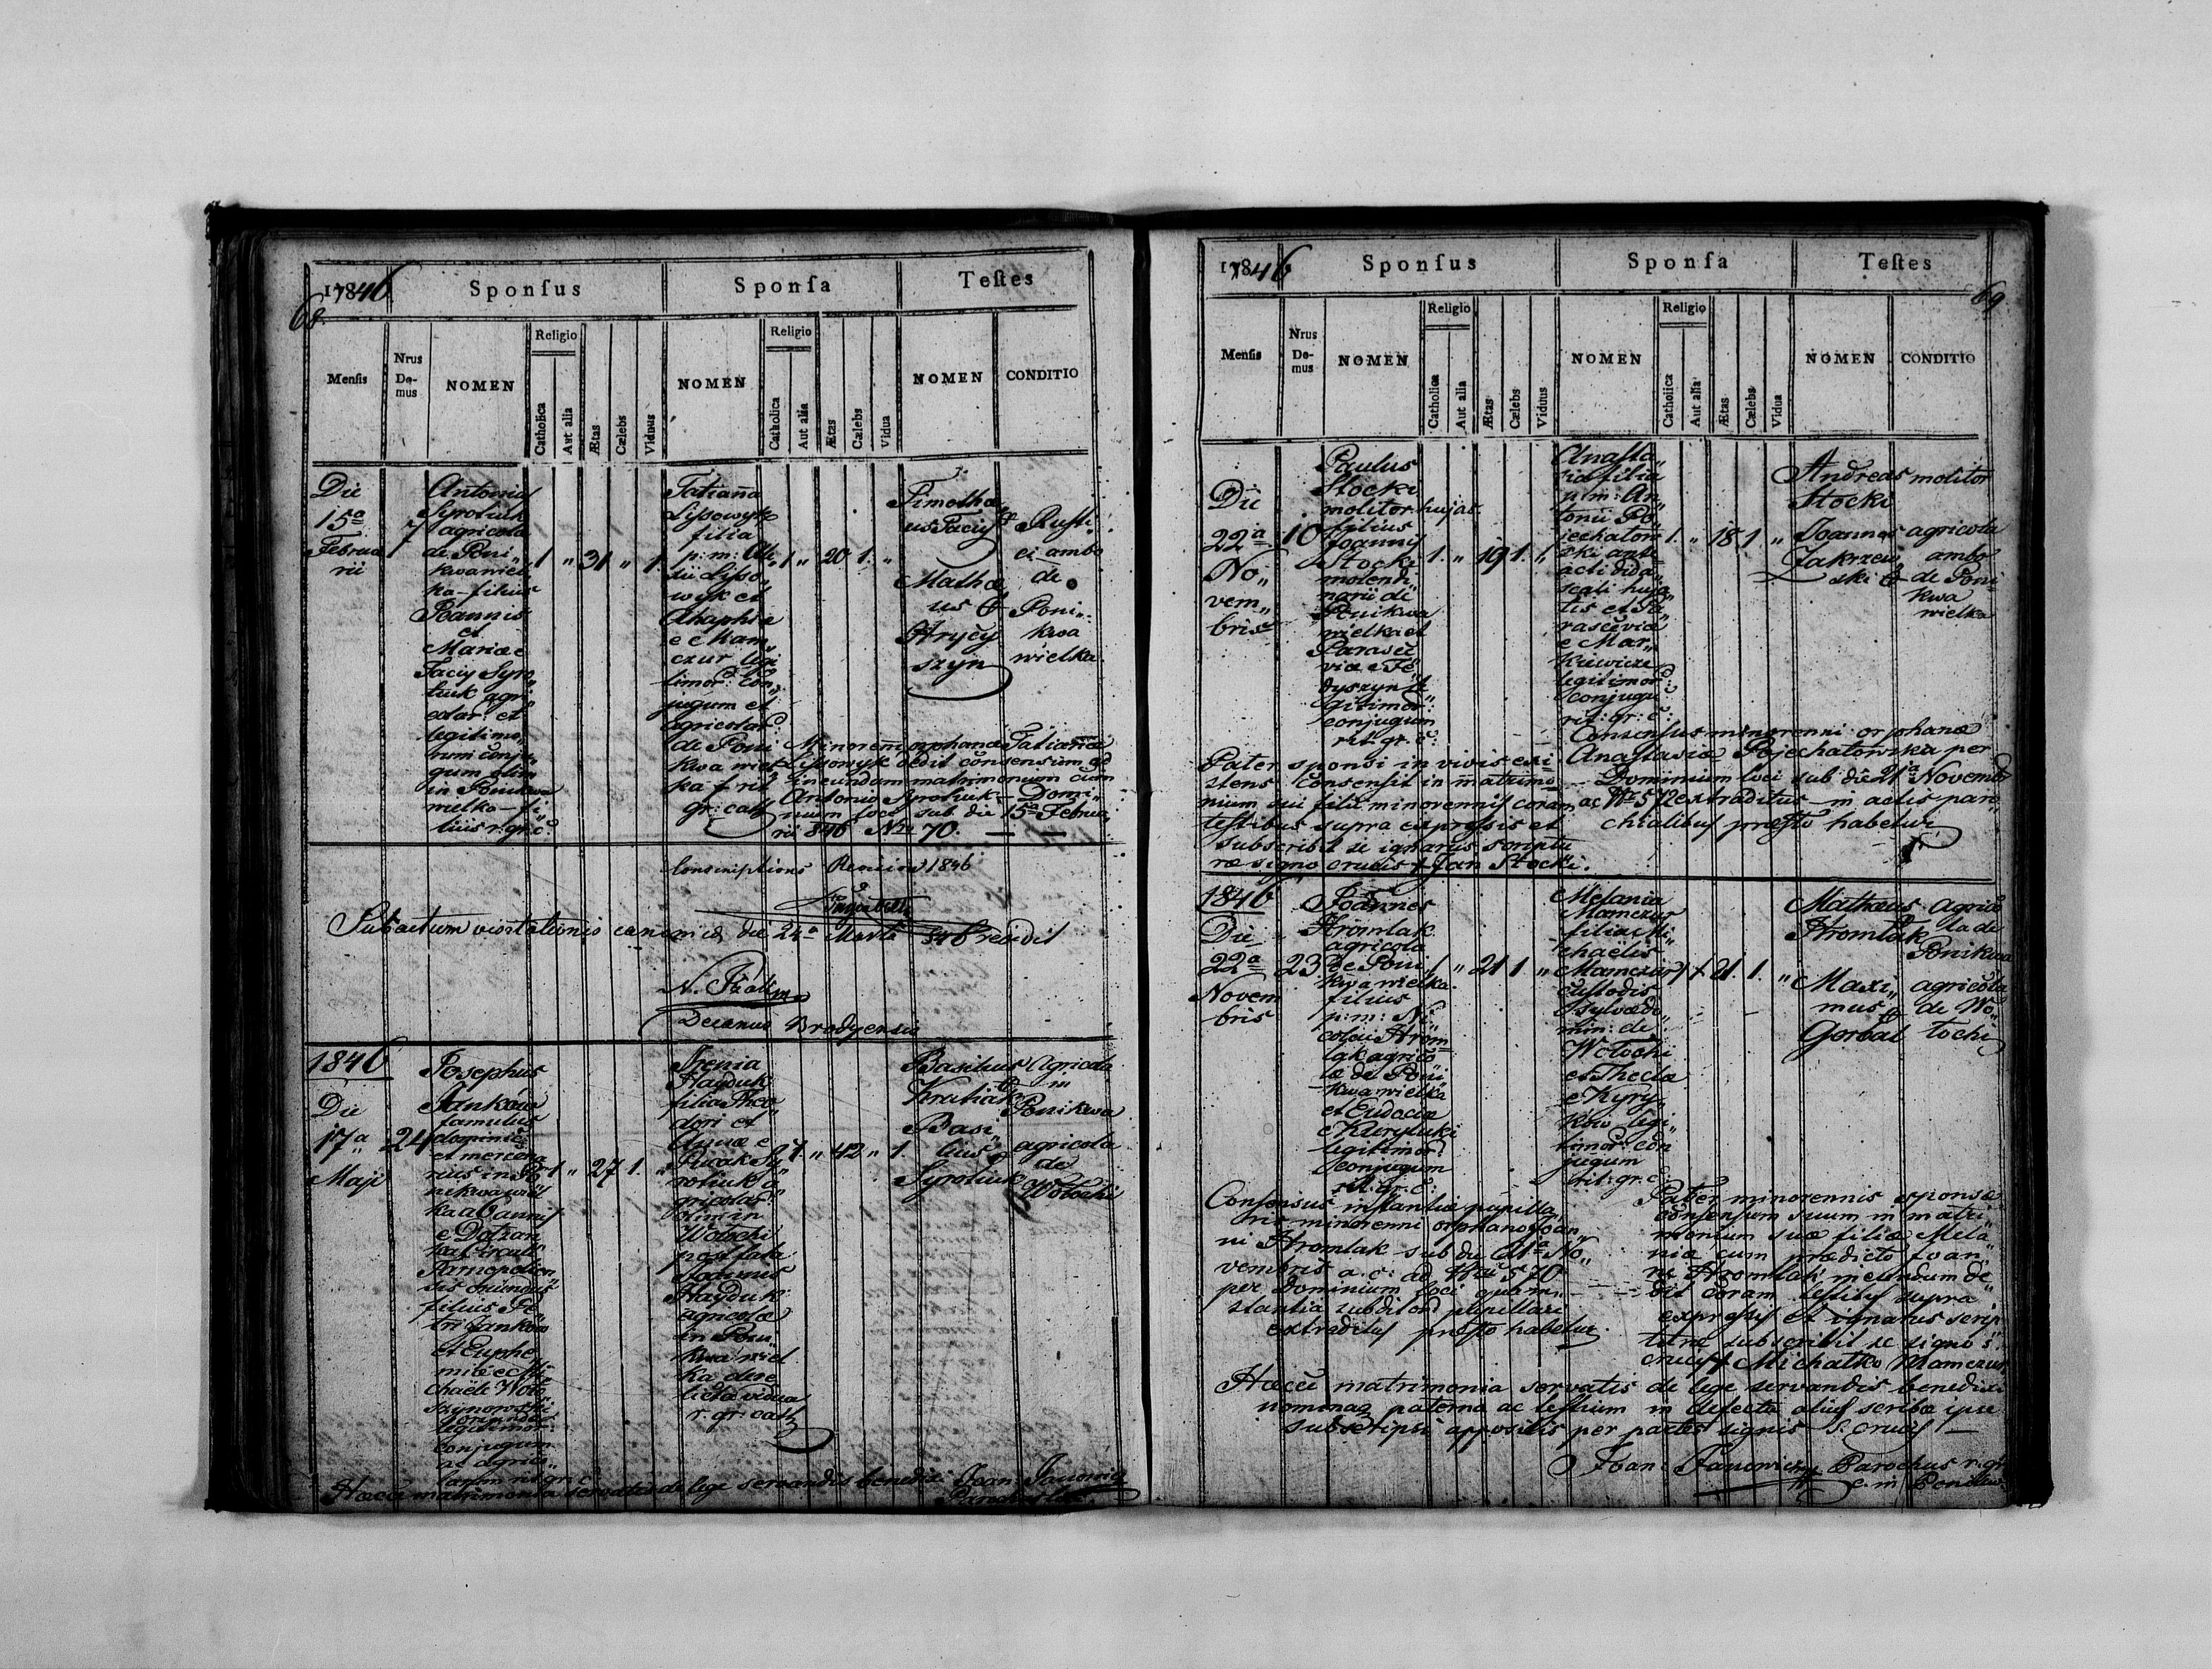 1846
68.
Sponsus
Sponsa
Testes
Mensis
Nrus Domus
NOMEN
Religio
Catholica
Aut alia
Ætas
Cælebs
Viduus
NOMEN
Religio
Catholica
Aut alia
Ætas
Cælebs
Vidua
NOMEN
CONDITIO
Die
15a
Februa
rii
7
Antonius
Syrotiuk
agricola
de Poni„
kwa wiel
ka – filius
Joannis
et
Mariae
Syro„
tiuk agri„
colar: et
legitimo„
rum conju„
gum olim
in Ponikwa
wielka – fi„
lius r. gr. c.
1
„
31
„
1.
Tatianna
Lissowyk
filia
p: m: Ale
xii Lisso„
wyk et
Ahaphiae
e Mam„
czur legi
timor: con„
jugum et
agricolar:
de Poni
kwa wiel
ka f. rit
gr: cath
1
„
20
1.
„
Timothe
us
Mathæ
us
Hrycy
szyn
Rusti
ci ambo
de
Poni„
kwa
wielka
Minorenni orphanæ Tatiannæ
Lissowyk dedit consensum ad
ineundam matrimonium cum
Antonio Syrotiuk – Domi„
nium loci sub die 15a Februa
rii 846 Nro 70. — —
Conscriptions Revision 1846
Sub actum visitationis canonicæ die 24a Martii 846
N.
Decanus Brodyensis
1846
Die
17a
Maji
24
Josephus
Jankow
famulus
dominic:
et mercena
rius in Po
nikwa wiel
ka ab annis
e
ka Circuli
Tarnopolien
sis oriundus
filius Pe
tri Jankow
et Euphe
miæ e Mi
chaele Woło
szynowski
oriundæ
legitimor:
conjugum
ac agrico„
larum rit gr. c.
1
„
27
1.
„
Irenia
Hayduk
filia Theo
dori et
Annæ e
Sy
rotiuk a
gricolar
olim in
Wołochi
post fata
Maximi
Hayduk
agricolæ
in Poni
kwa wiel
ka dere
licta vidua
r. gr. cath
1.
„
42
„
1.
Basilius
Krutiak
Basi„
lius
Syrotiuk
Agricola
in
Ponikwa
agricola
de
Wołochi
Hæce matrimonia servatis de lege servandis benedixi Joan: Janowicz
Parochus
1846
69
Sponsus
Sponsa
Testes
Mensis
Nrus Domus
NOMEN
Religio
Catholica
Aut alia
Ætas
Cælebs
Viduus
NOMEN
Religio
Catholica
Aut alia
Ætas
Cælebs
Vidua
NOMEN
CONDITIO
Die
22a
No„
vem„
bris
10
Paulus
Stocki
molitor hujas
filius
Joannis
Stocki
molendi„
narii di
Ponikwa
wielka et
Parasce
viæ e Fe
dyszyn le
gitimor:
conjugum
rit. gr. c.
1.
„
19
1.
„
Anasta„
sia filia
p: m: An„
tonii Po„
jechatow
ski ante
acti dida„
scali huja
tis et Pa„
rasceviæ
e Mar„
kiewicze
legitimor:
conjugu
rit: gr: c:
1.
„
18
1.
„
Andreas
Stocki
Joannes
Zakrzew
ski
molitor
agricola
ambo
de Poni
kwa
wielka
Pater sponsi in vivis exi
stens consensit in matrimo
nium sui filii minorennis coram
testibus supra expressis et
subscribit se ignarus scriptu
ræ signo crucis + Jan Stocki.
Consensus minorenni orphanæ
Anastasiæ Pojechatowska per
Dominium loci sub die 21a Novemb
ac No 572 extraditus – in actis paro
chialibus præsto habetur
1846
Die
22a
Novem
bris
23
Joannes
Hromlak
agricola
de Poni
kwa wielka
filius
p: m: Ni
colai Hrom
lak agrico
læ de Poni
kwa wielka
et Eudociæ
e Kuryluki
legitimor:
conjugum
rit. gr. c.
1
„
21
1.
„
Melania
Mamczur
filia Mi„
chaelis
Mamczur
custodis
sylvæ do
min: de
Wołochi
et Theclæ
e Kyry„
ków legi„
timor: con
jugum
rit: gr: c
1
21.
1.
„
Mathæus
Hromlak
Maxi„
mus
Gorbal
Agrico
la de
Ponikwa
agricola
de Wo„
łochi
Consensus instantiæ pupilla
ris minorenni orphano Joan„
ni Hromlak sub die 21a No„
vembris a. c. ad Nrum 570
per Dominium loci quam in
stantia subdito pupillari
extraditus præsto habetur.
Pater minorennis sponsæ
consensum suum in matri„
monium suæ filiæ Mela„
niæ cum prædicto Joan„
ne Hromlak ineundum de„
dit coram testibus supra
expressis et ignarus scrip
turæ subscribit se signo s.
crucis + Michałko Mamczur
Hæce matrimonia servatis de lege servandis benedixi
nominaq paterna ac testium in defectu alius scribæ ipse
subscripsi appositis per partes signis S. crucis —
Joan: Janowicz Parochus r. gr.
c. in Ponikwa